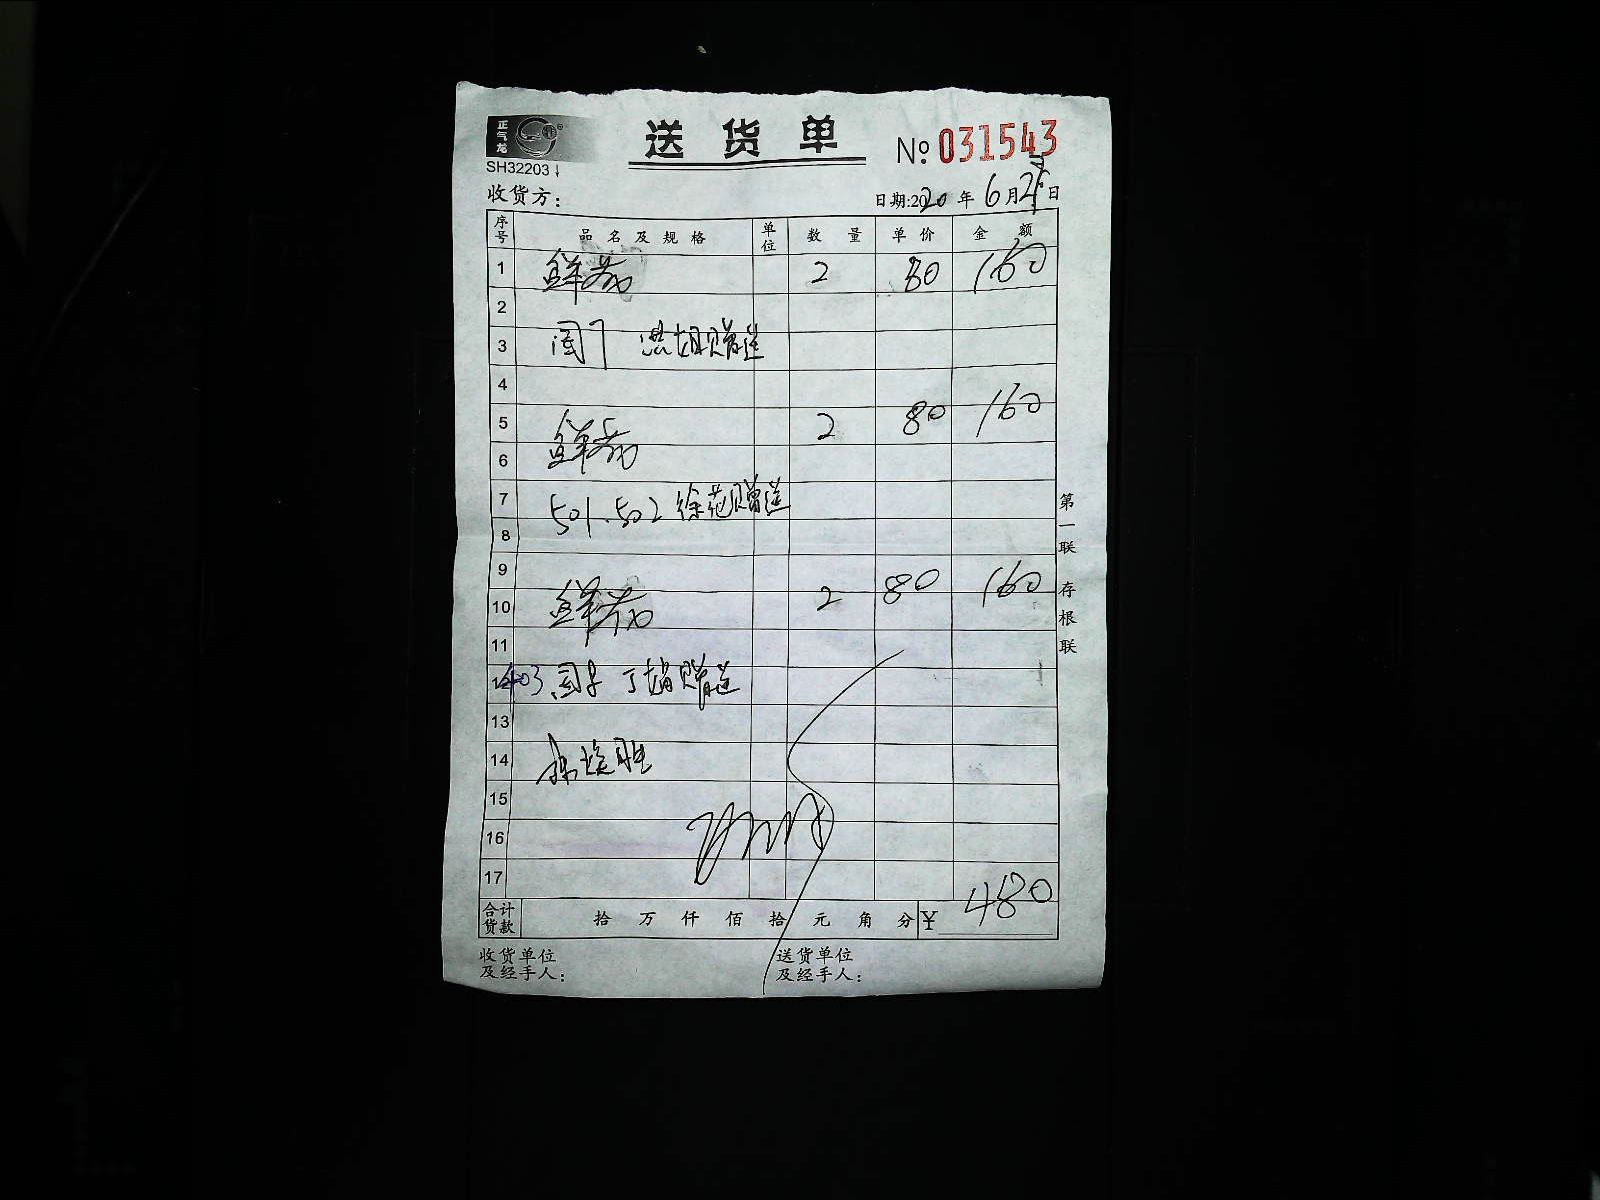 正气龙
送货单
№ 031543
SH32203
收货方：
日期:2020 年 6 月 日
序号 品名及规格 单位 数量 单价 金额
1 鲜荔 2 80 160
2
3 赠送
4
5 鲜荔 2 80 160
6
7 501.502 徐花赠送
8
9
10 鲜荔 2 80 160
11
12 403 赠送
13
14
15
16
17
合计货款 拾 万 仟 佰 拾 元 角 分 ¥ 480
第一联 存根联
收货单位及经手人：
送货单位及经手人：